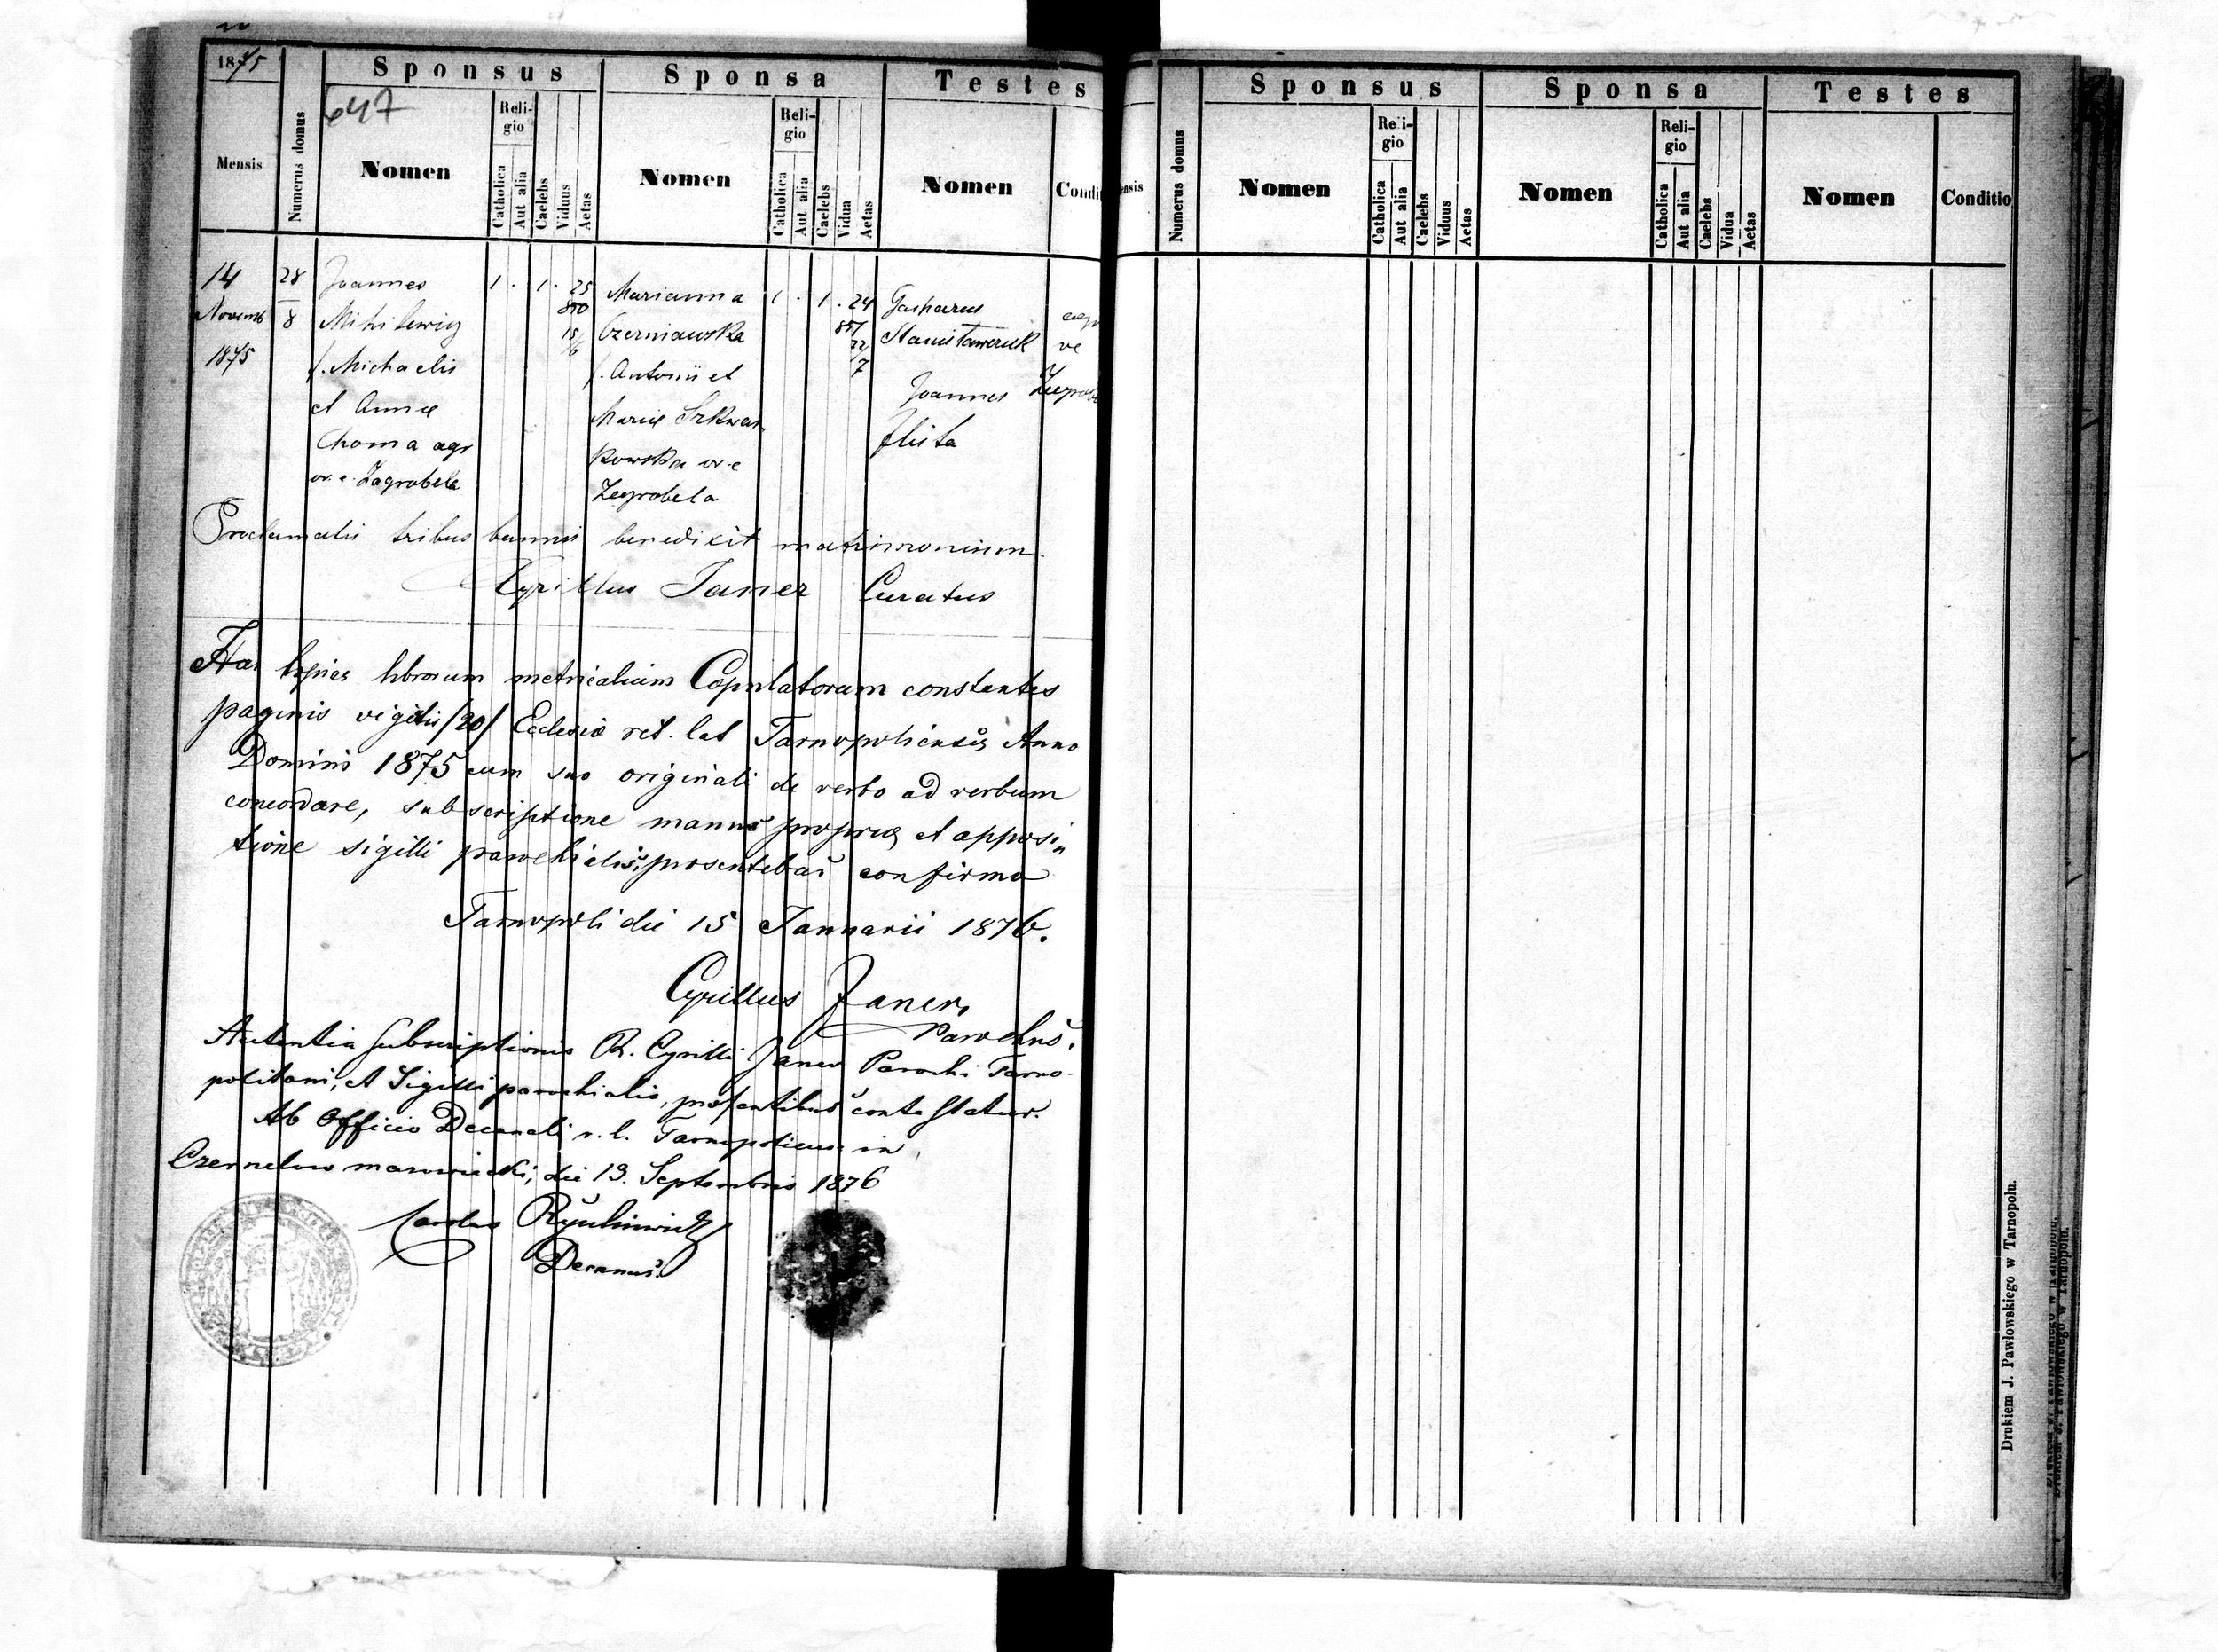 1875
Sponsus
Sponsa
Testes
647
Mensis
Numerus domus
Nomen
Reli-
gio
Catholica
Aut alia
Caelebs
Viduus
Aetas
Nomen
Reli-
gio
Catholica
Aut alia
Caelebs
Vidua
Aetas
Nomen
Condit
14
Novemb
1875
28
8
Joannes
Mihilewicz
f. Michaelis
et Annae
Choma agr
or. e. Zagrobela
1 . 1 . 25
850
15/6
Marianna
Czerniawska
f. Antonii et
Mariae
kowska or. e
Zagrobela
1 . 1 . 24
851
22/7
Gasparus
Stanisławczuk
Joannes
Flista
agr
ve
Zagrobe
Proclamatis tribus bannis benedixit matrimonium
Cyrillus Janer Curatus
Has copias librorum metricalium Copulatorum constantes
paginis vigitis /20/ Ecclesiae rit. lat Tarnopoliensis Anno
Domini 1875 cum suo originali de verbo ad verbum
concordare, subscriptione manus propriae et apposi„
tione sigilli parochialis, presentebus confirmo
Tarnopoli die 15 Januarii 1876.
Cyrillus Janer,
Parochus.
Autentia Subscriptionis R. Cyrilli Janer Parochi Tarno-
politani, et Sigilli parochialis, presentibus contestatur.
Ab Officio Decanali r. l. Tarnopoliens in
Czernelow mazowiecki, die 13. Septembris 1876
Carolus
Decanus.
ensis
Numerus domus
Sponsus
Sponsa
Testes
Nomen
Reli-
gio
Catholica
Aut alia
Caelebs
Viduus
Aetas
Nomen
Reli-
gio
Catholica
Aut alia
Caelebs
Vidua
Aetas
Nomen
Conditio
Drukiem J. Pawłowskiego w Tarnopolu.
Drukiem J. Pawłowskiego w Tarnopolu.